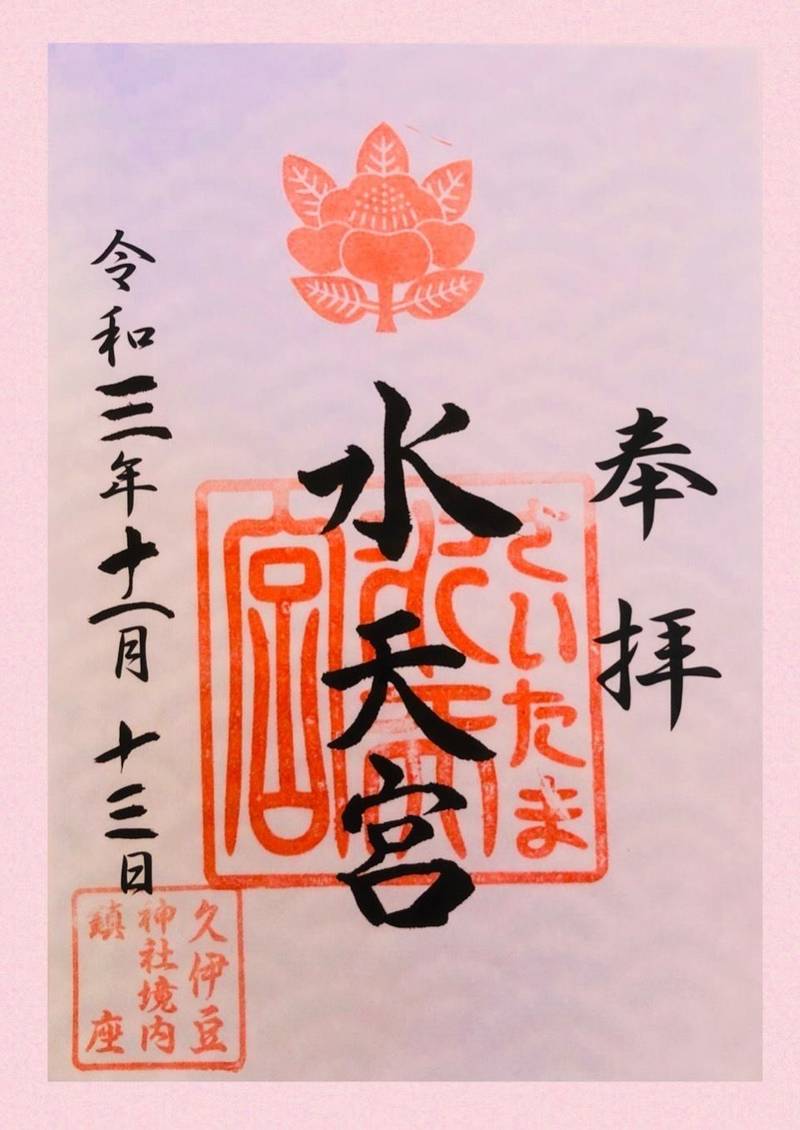 奉拝
水天宮
さいたま
水天
宮
令和三年十一月十三日
久伊豆
神社境内
鎮座